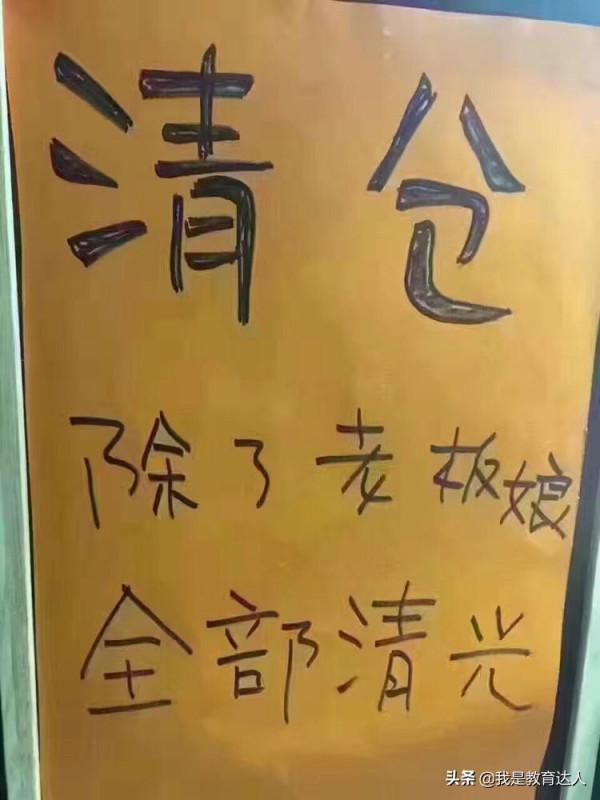 清仓
除了老板娘
全部清光
头条 @我是教育达人